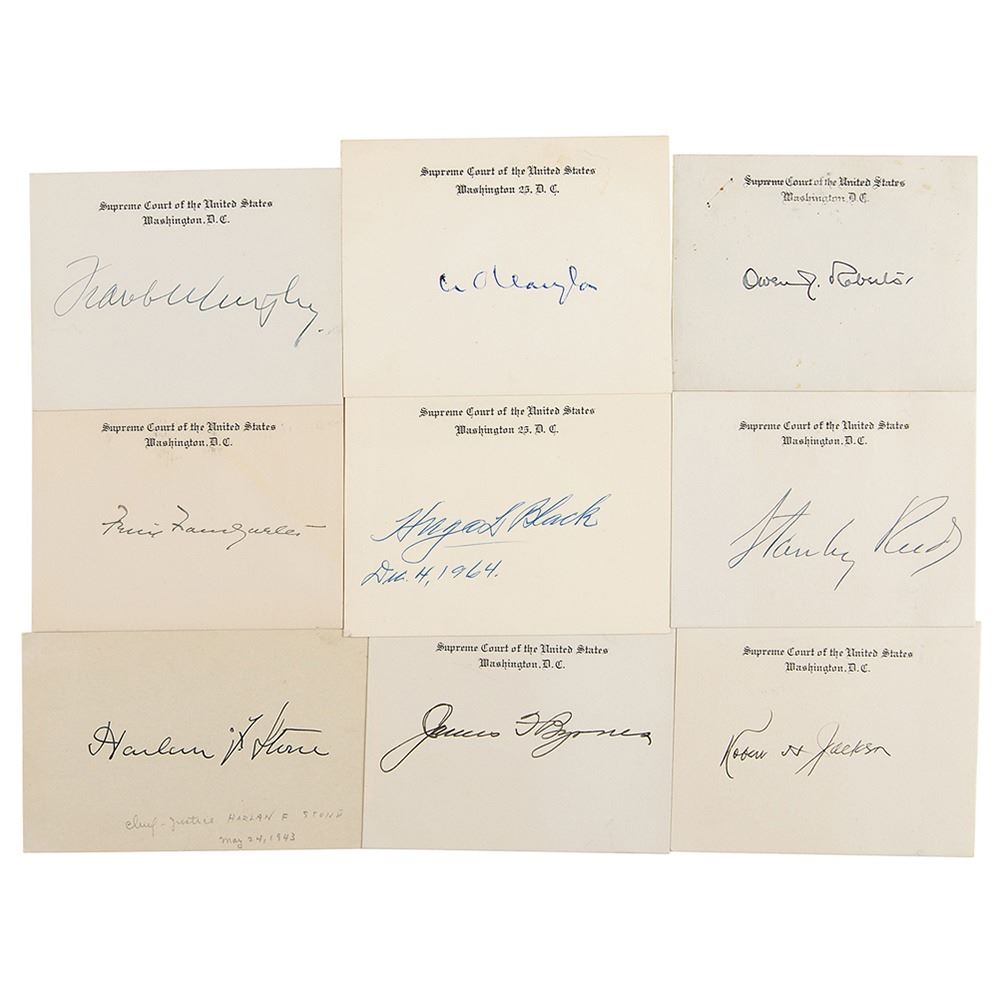 Supreme Court of the United States
Washington, D.C.
Frank Murphy.
Supreme Court of the United States
Washington 25, D. C.
Wm O Douglas
Supreme Court of the United States
Washington, D.C.
Owen J. Roberts
Supreme Court of the United States
Washington, D.C.
Felix Frankfurter
Supreme Court of the United States
Washington 25, D. C.
Hugo L Black
Dec. 4, 1964.
Supreme Court of the United States
Washington, D.C.
Stanley Reed
Harlan F Stone
Chief-Justice HARLAN F STONE
May 24, 1943
Supreme Court of the United States
Washington, D.C.
James F Byrnes
Supreme Court of the United States
Washington, D.C.
Robert H Jackson